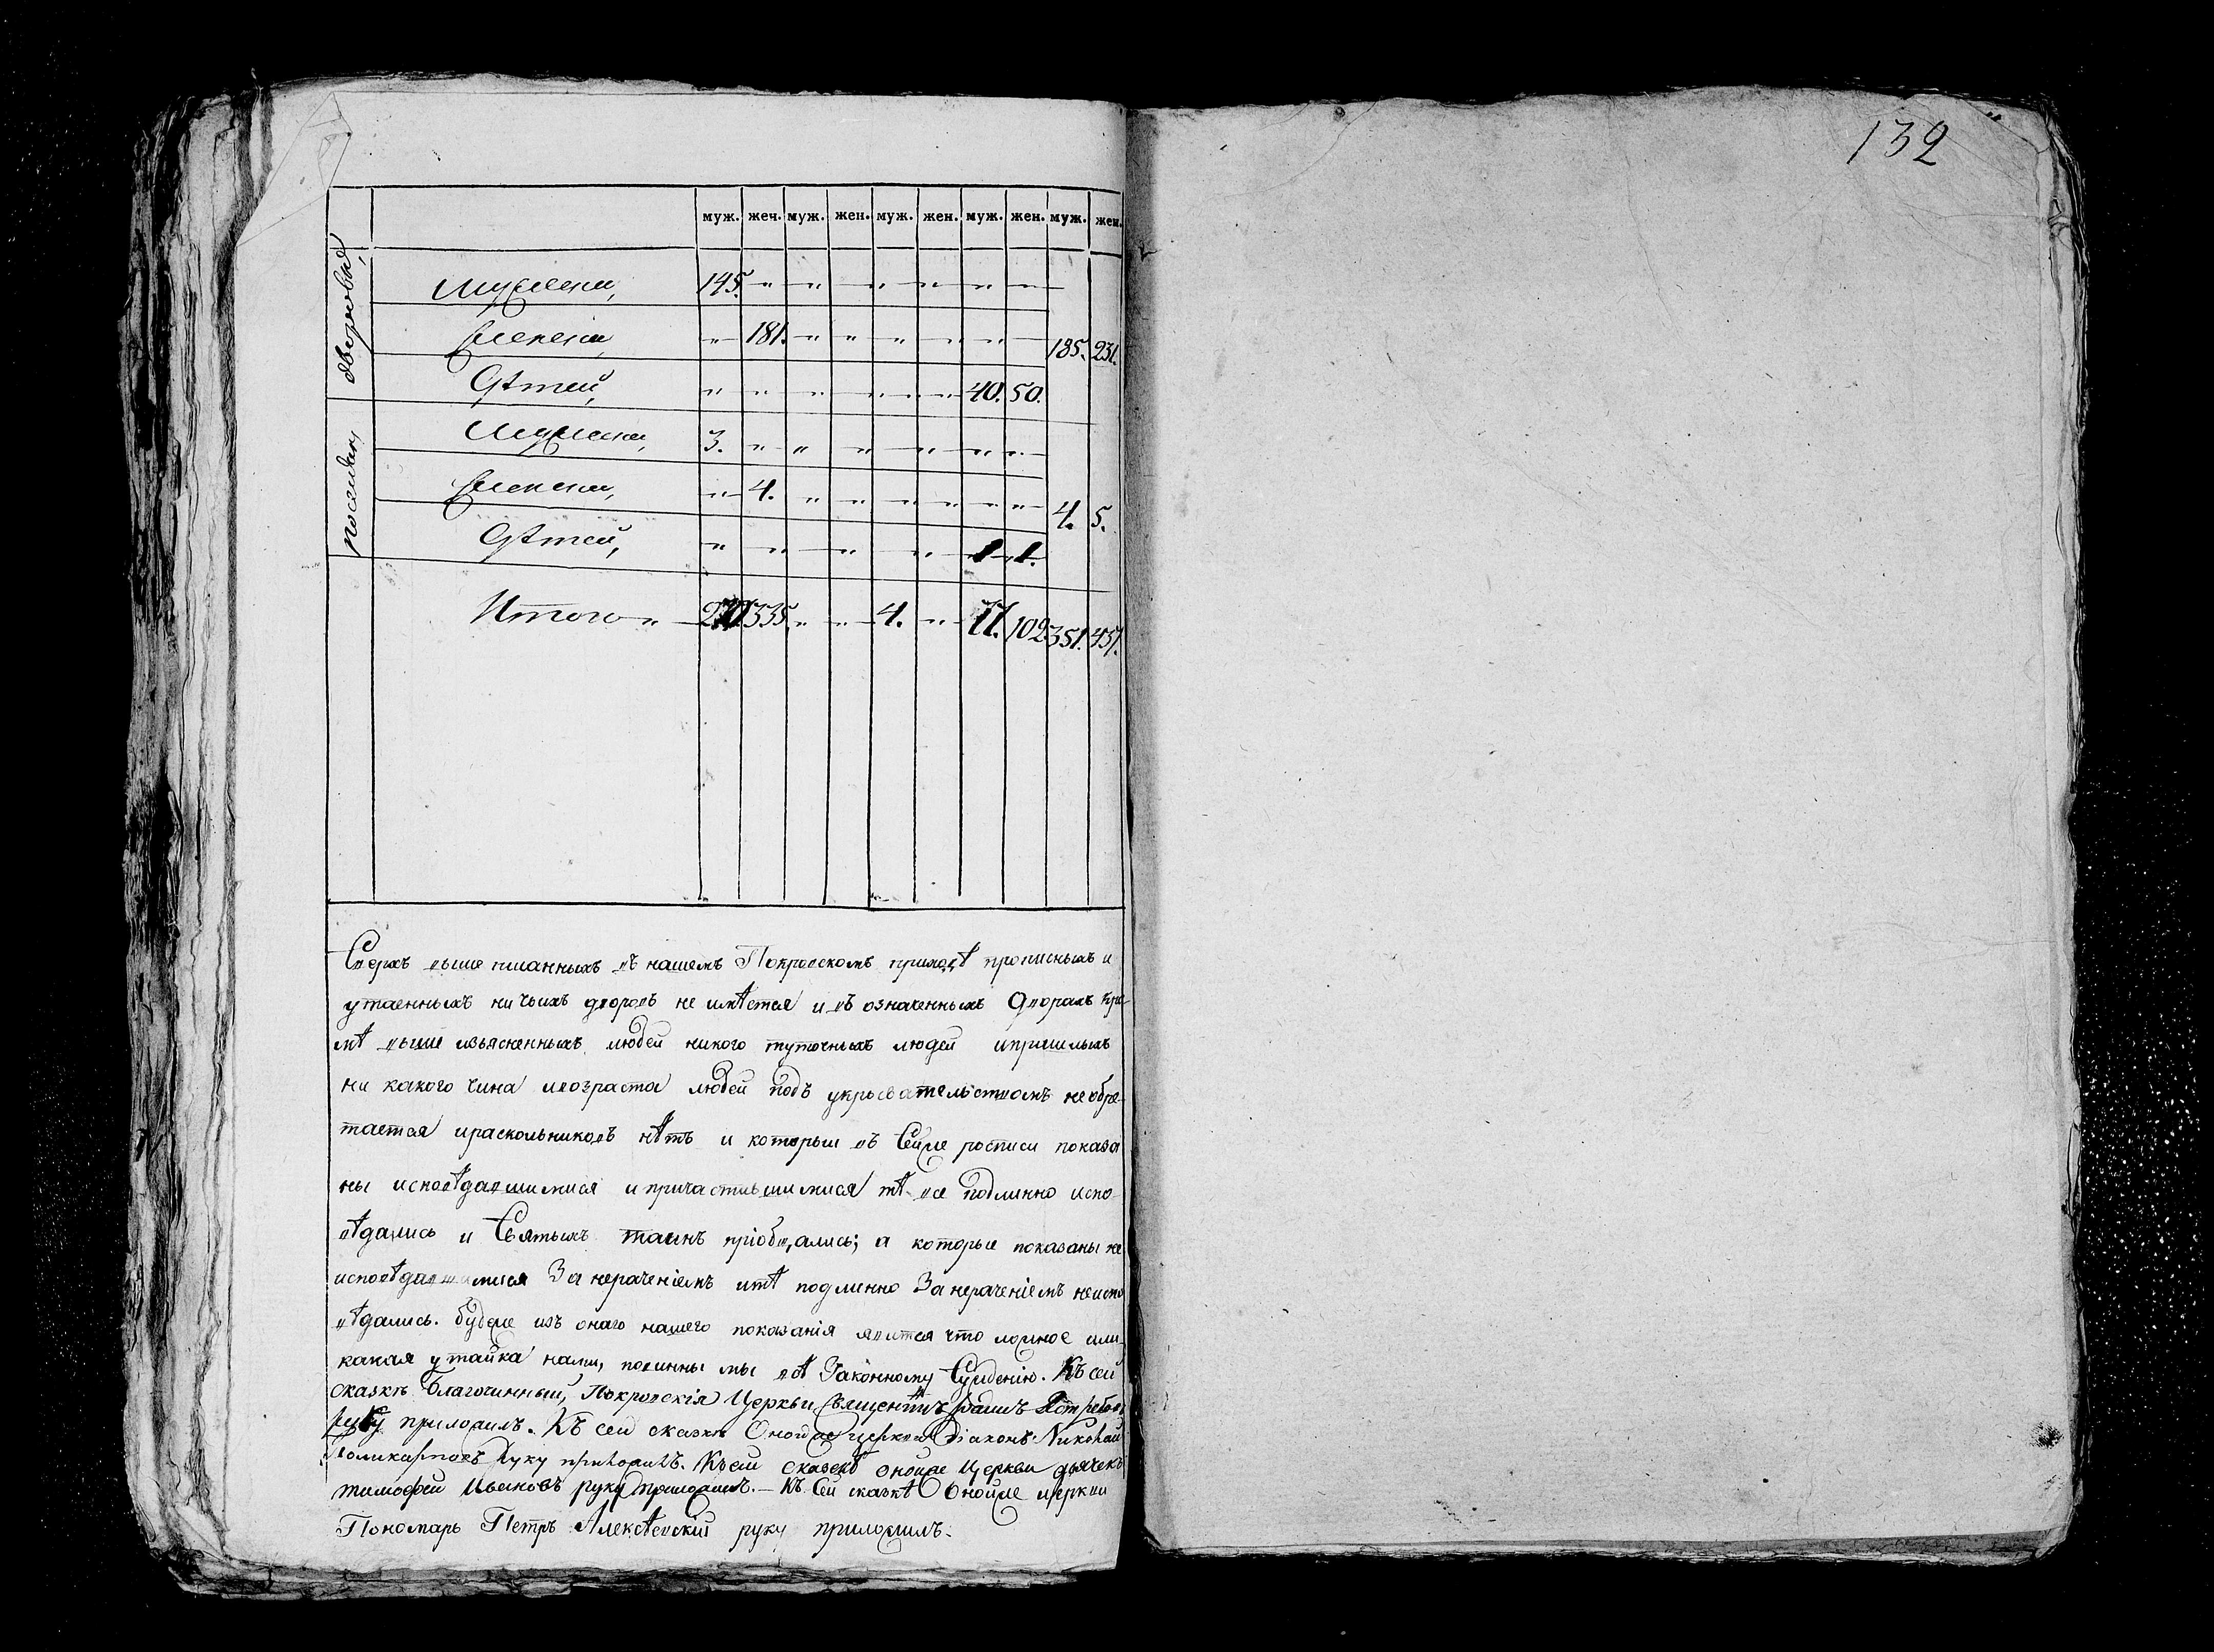 132
муж. жен. муж. жен. муж. жен. муж. жен. муж. жен.
дворовые,
мужеска, 145. „ „ „ „ „ „ „
женска, „ 181. „ „ „ „ „ 185. 231.
Дѣтей, „ „ „ „ „ „ 40. 50.
поселян,
Мужеска, 3. „ „ „ „ „ „
женска, „ 4. „ „ „ „ „ „ 4. 5.
Дѣтей, „ „ „ „ 1. 1.
Итого „ 335. „ „ 4. „ 77. 102 351. 437.
Сверхъ выше писанныхъ въ нашемъ Покровскомъ приходѣ прописныхъ и
утаенныхъ ни чьихъ дворовъ не имѣется и въ означенныхъ Дворахъ кро-
мѣ выше изъясненныхъ людей никого туточныхъ людей и пришлыхъ
ни какого чина и возраста людей подъ укрывательствомъ не обре-
тается и раскольниковъ нѣтъ и которыи въ Сейже росписи показа
ны исповѣдавшимися и причастившимися тѣ все подлинно испо-
вѣдались и Святыхъ таинъ пріобщались; а которые показаны не
исповѣдавшимися За нераченіемъ и тѣ подлинно За нераченіемъ неиспо
вѣдались. буде же изъ онаго нашего показанія явится что ложное или
какая утайка нами, повинны мы всѣ Законному Сужденію. Къ сей
сказкѣ благочинный, Покровскія Церкви Священникъ
руку приложилъ. Къ сей сказкѣ Оной же церкви Діаконъ Николай
Поликарповъ Руку приложилъ. Къ сей сказкѣ оной же Церкви дьячекъ
тимофей Ивановъ руку приложилъ. — Къ Сей сказкѣ оной же церкви
Пономарь Петръ Алексѣевскій руку приложилъ.